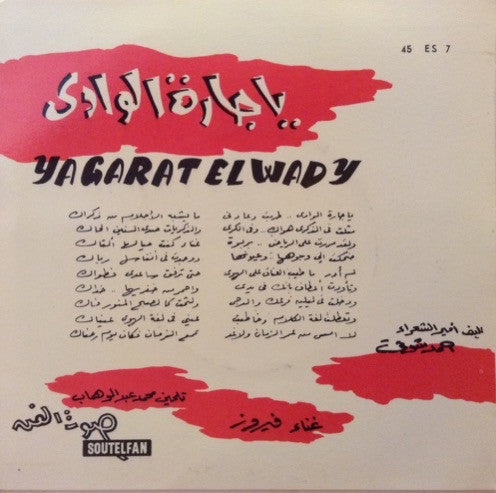 45 ES 7
يا جارة الوادى
YAGARAT EL WADY
يا جارة الوادى .. طربت وعادنى ما يشبه الأحلام من ذكراك
مثلت فى الذكرى هواك .. وفى الكرى والذكريات صدى السنين الحاكى
ولقد مررت على الرياض .. بربوة غناء كنت حيالها ألقاك
ضحكت إلى وجوهها .. وعيونها ووجدت فى أنفاسها رياك
لم أدر .. ما طيب العناق على الهوى حتى ترفق ساعدى فطواك
وتأودت أعطاف بانك فى يدى واحمر من خفريهما .. خداك
ودخلت فى ليلين فرعك والدجى ولثمت كالصبح المنور فاك
وتعطلت لغة الكلام وخاطبت عينى فى لغة الهوى عيناك
لا أمس من عمر الزمان ولا غد جمع الزمان فكان يوم رضاك
تأليف أمير الشعراء
أحمد شوقى
تلحين محمد عبد الوهاب
غناء فيروز
صوت الفن
SOUTELFAN